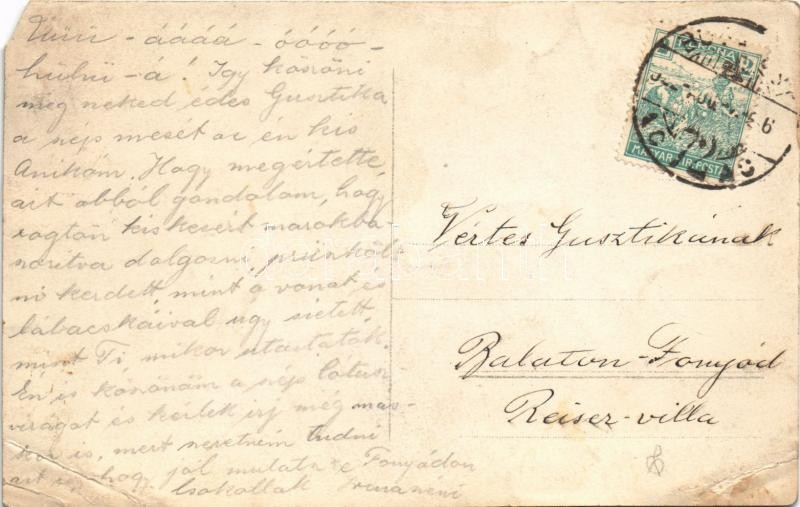 Üüü - áááá - óóóó -
hühü - á! Igy köszöni
meg neked, édes Gusztika
a szép mesét az én kis
Anikóm. Hogy megértette
azt abból gondolom, hogy
rogtön kis kezeit marokba
szoritva dolgozni, prüszkölt
ni kezdett mint a vonat és
lábacskáival ugy sietett
mint Ti, mikor utaztatok.
Én is köszönöm a szép lótusz
virágot és kérlek irj még más-
kor is, mert szeretném tudni
azt is, hogy jól mulatsz e Fonyódon
Csokollak
2 KORONA 2
MAGYAR KIR. POSTA
Vértes Gusztikának
Balaton-Fonyód
Reiser-villa